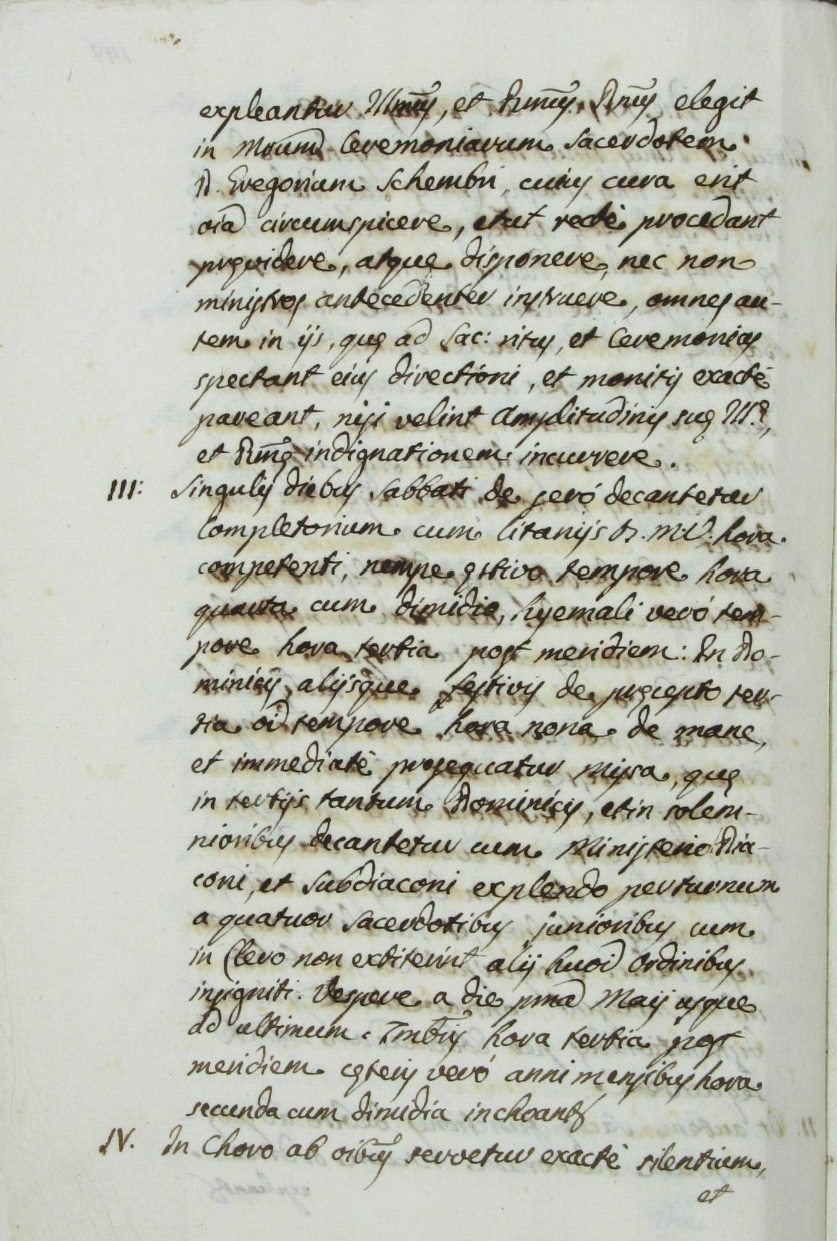 expleantur Illmus, et Rmus. Dnus elegit
in Mrum Ceremoniarum Sacerdotem
D. Gregorium Schembri, cuius cura erit
oia circumspicere, et ut rectè procedant
pręvidere, atque disponere, nec non
ministros antecedenter instruere, omnes au-
tem in ijs, quę ad Sac: ritus, et Ceremonias
spectant eius directioni, et monitis exactè
pareant, nisi velint Amplitudinis suę Ill.ę,
et Rmę indignationem incurrere.
III: Singulis diebus Sabbati de serò decantetur
Completorium cum litanijs B. M. V. hora
competenti, nempe ęstivo tempore hora
quarta cum dimidia, hyemali verò tem-
pore hora tertia post meridiem: In Do-
minicis, alijsque festivis de pręcepto ter-
tia oi tempore hora nona de mane,
et immediatè prosequatur Missa, quę
in tertijs tantum Dominicis, et in solem-
nioribus decantetur cum Ministerio Dia-
coni, et Subdiaconi explendo per turnum
a quatuor Sacerdotibus junioribus cum
in Clero non extiterint alij huod Ordinibus
insigniti. Vesperę a die pma Maij usque
ad ultimum 7mbris hora tertia post
meridiem cęteris verò anni mensibus hora
secunda cum dimidia inchoantur
IV. In Choro ab oibus servetur exactè silentium,
et